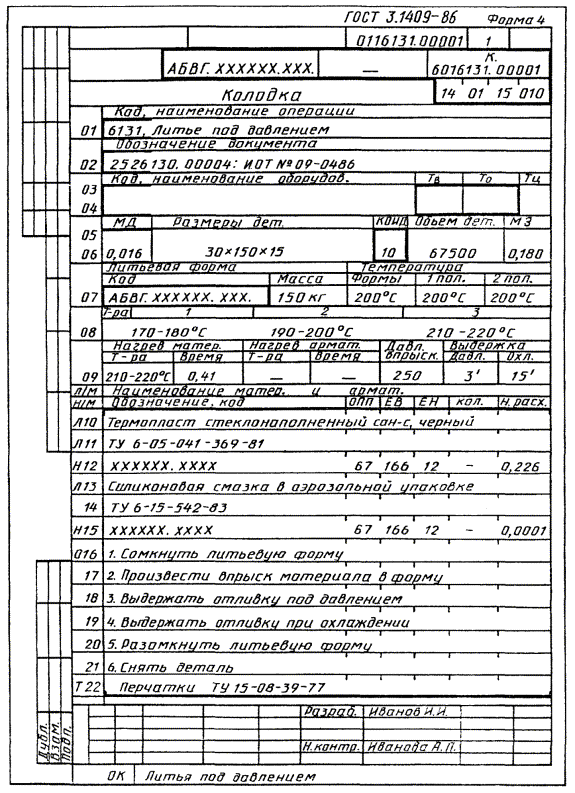 ГОСТ 3.1409-86 Форма 4
0116131.00001 1
АБВГ. XXXXXX.XXX. — К. 6016131.00001
Колодка 14 01 15 010
Код, наименование операции
01 6131, Литье под давлением
Обозначение документа
02 2526130. 00004: ИОТ №09-0486
Код, наименование оборудов. Тв То Тц
03
04
МД Размеры дет. КОИД Объем дет. МЗ
05
06 0,016 30×150×15 10 67500 0,180
Литьевая форма Температура
Код Масса Формы 1 пол. 2 пол.
07 АБВГ. XXXXXX. XXX. 150 кг 200°С 200°С 200°С
Т-ра 1 2 3
08 170-180°С 190-200°С 210-220°С
Нагрев матер. Нагрев армат. Давл. впрыск. Выдержка
Т-ра Время Т-ра Время Давл. Охл.
09 210-220°С 0,41 — — 250 3' 15'
Л/М Наименование матер. и армат.
Н/М Обозначение, код ОПП ЕВ ЕН кол. Н.расх.
Л10 Термопласт стеклонаполненный сан-с, черный
Л11 ТУ 6-05-041-369-81
Н12 XXXXXX. XXXX 67 166 12 - 0,226
Л13 Силиконовая смазка в аэрозольной упаковке
14 ТУ 6-15-542-83
Н15 XXXXXX. XXXX 67 166 12 - 0,0001
О16 1. Сомкнуть литьевую форму
17 2. Произвести впрыск материала в форму
18 3. Выдержать отливку под давлением
19 4. Выдержать отливку при охлаждении
20 5. Разомкнуть литьевую форму
21 6. Снять деталь
Т22 Перчатки ТУ 15-08-39-77
Разраб. Иванов И.И.
Дубл.
Взам.
Подл.
Н.контр. Иванова А.П.
ОК Литья под давлением